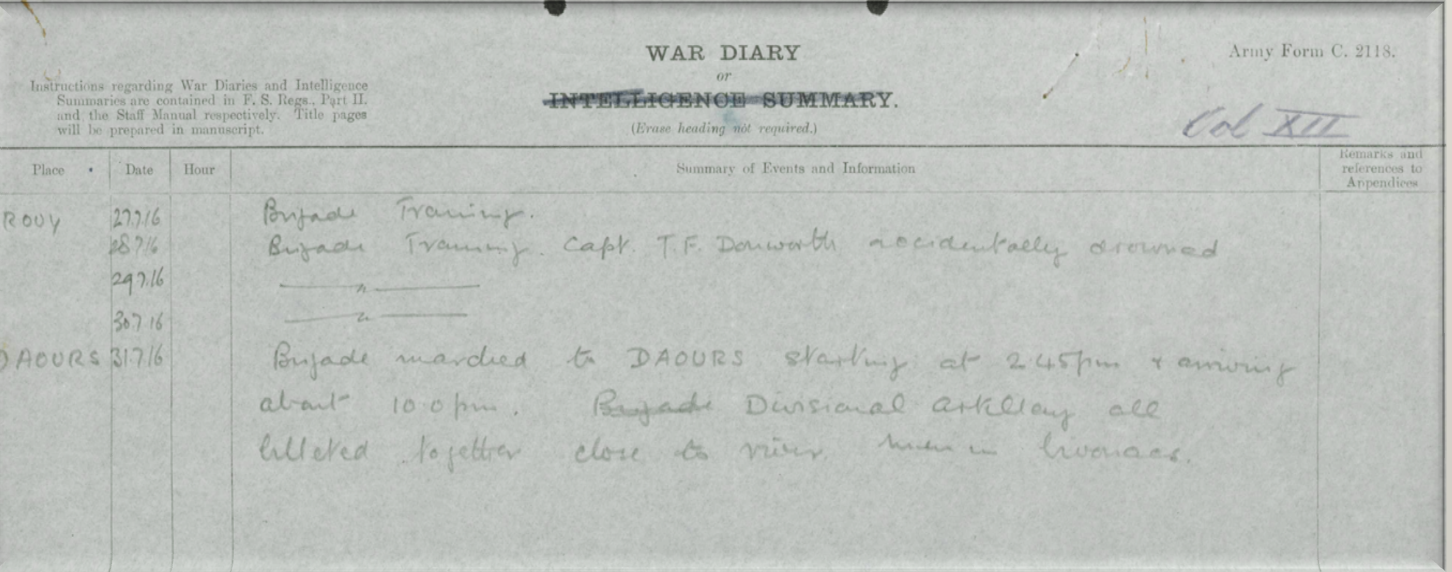 WAR DIARY
or
INTELLIGENCE SUMMARY.
(Erase heading not required.)
Army Form C. 2118.
Instructions regarding War Diaries and Intelligence
Summaries are contained in F. S. Regs., Part II.
and the Staff Manual respectively. Title pages
will be prepared in manuscript.
Vol XII
Place Date Hour Summary of Events and Information Remarks and
references to
Appendices
ROUY 27.7.16 Brigade Training.
28.7.16 Brigade Training. Capt. T.F. Donworth accidentally drowned
29.7.16 — " —
30.7.16 — " —
DAOURS 31.7.16 Brigade marched to DAOURS starting at 2.45pm & arriving
about 10.0pm. Brigade Divisional Artillery all
billeted together close to river. men in bivouacs.